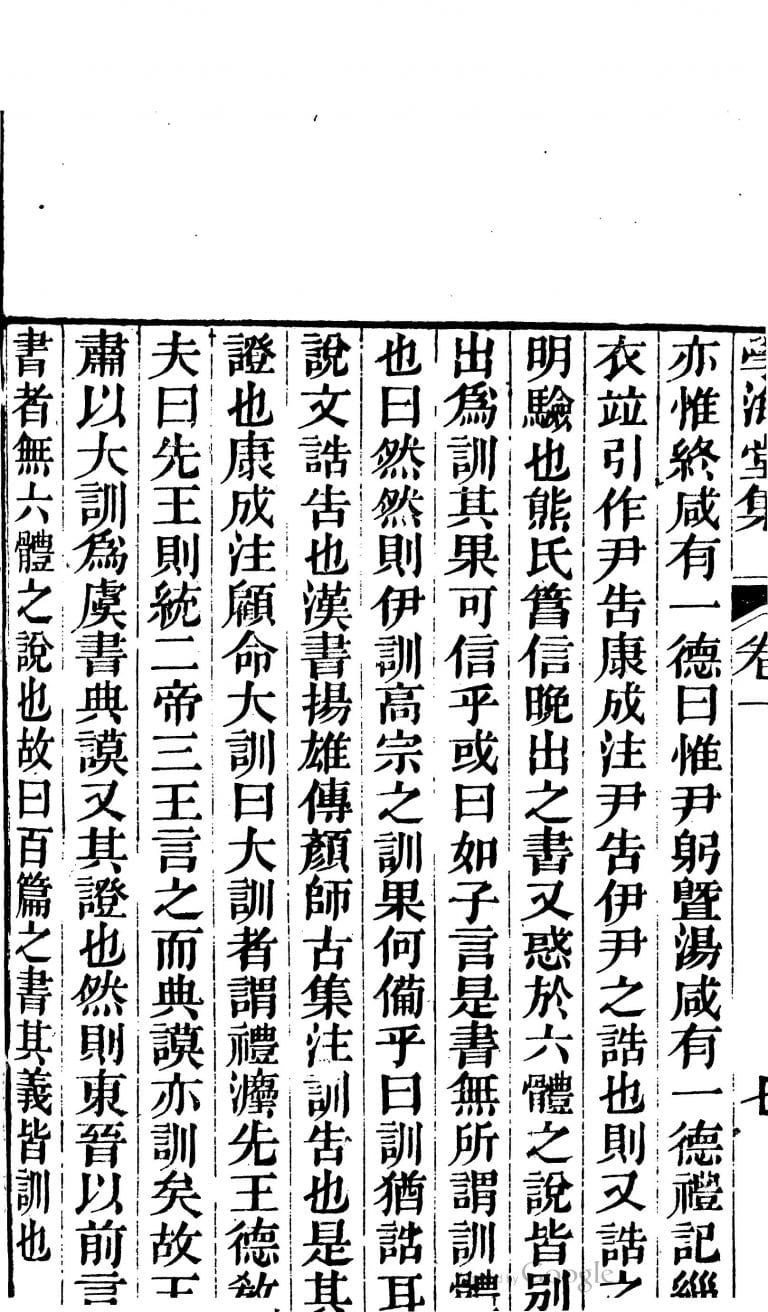 學海堂集 卷一 七
亦惟終咸有一德曰惟尹躬曁湯咸有一德禮記緇
衣竝引作尹吿康成注尹吿伊尹之誥也則又誥之
明驗也熊氏篤信晚出之書又惑於六體之說皆别
出爲訓其果可信乎或曰如子言是書無所謂訓體
也曰然然則伊訓高宗之訓果何備乎曰訓猶詁耳
說文誥吿也漢書揚雄傳顏師古集注訓吿也是其
證也康成注顧命大訓曰大訓者謂禮灋先王德敎
夫曰先王則統二帝三王言之而典謨亦訓矣故王
肅以大訓爲虞書典謨又其證也然則東晉以前言
書者無六體之說也故曰百篇之書其義皆訓也
Google